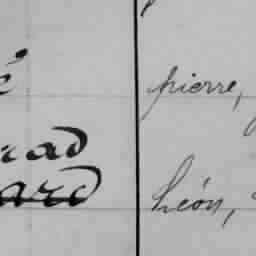 é pierre,
rad
ard Léon,